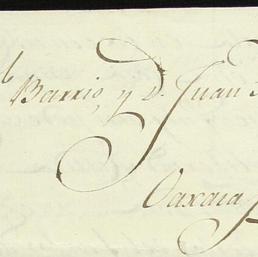 Barrio, y D. Juan
Oaxaca